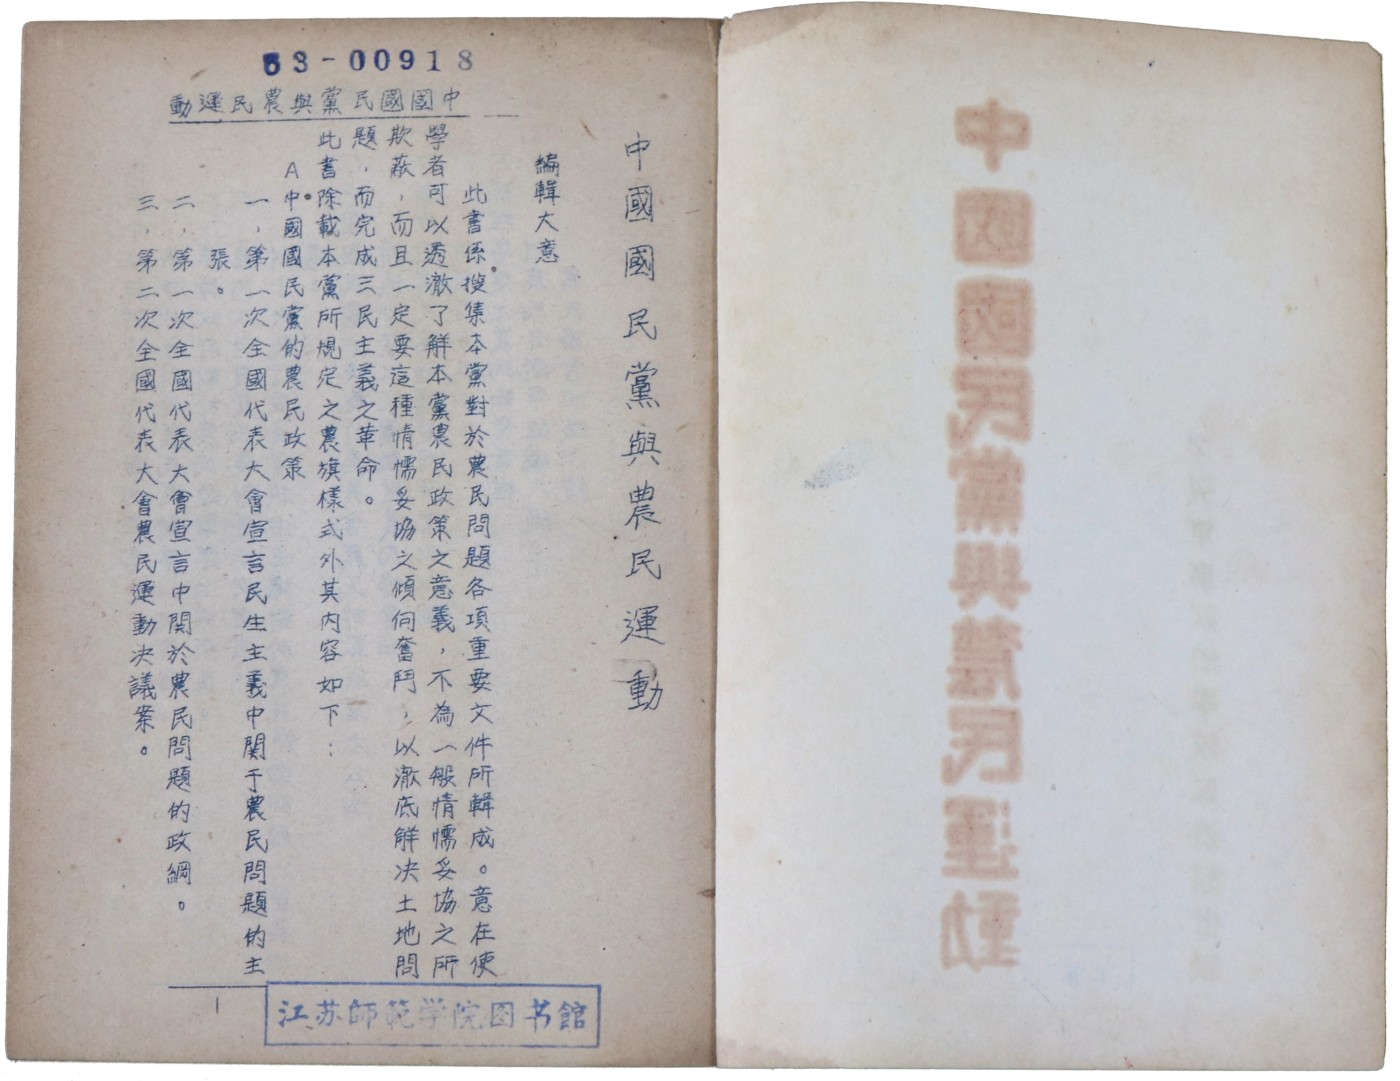 63-00918
中國國民黨與農民運動
中國國民黨與農民運動
編輯大意
此書係搜集本黨對於農民問題各項重要文件所輯成。意在使
學者可以透澈了解本黨農民政策之意義，不為一般情懦妥協之所
欺蔽，而且一定要這種情懦妥協之傾向奮鬥，以澈底解决土地問
題，而完成三民主義之革命。
此書除載本黨所規定之農旗樣式外其內容如下：
A中國國民黨的農民政策
一，第一次全國代表大會宣言民生主義中関于農民問題的主
張。
二，第一次全國代表大會宣言中関於農民問題的政綱。
三，第二次全國代表大會農民運動决議案。
1
江苏師范学院图书館
中國國民黨與農民運動